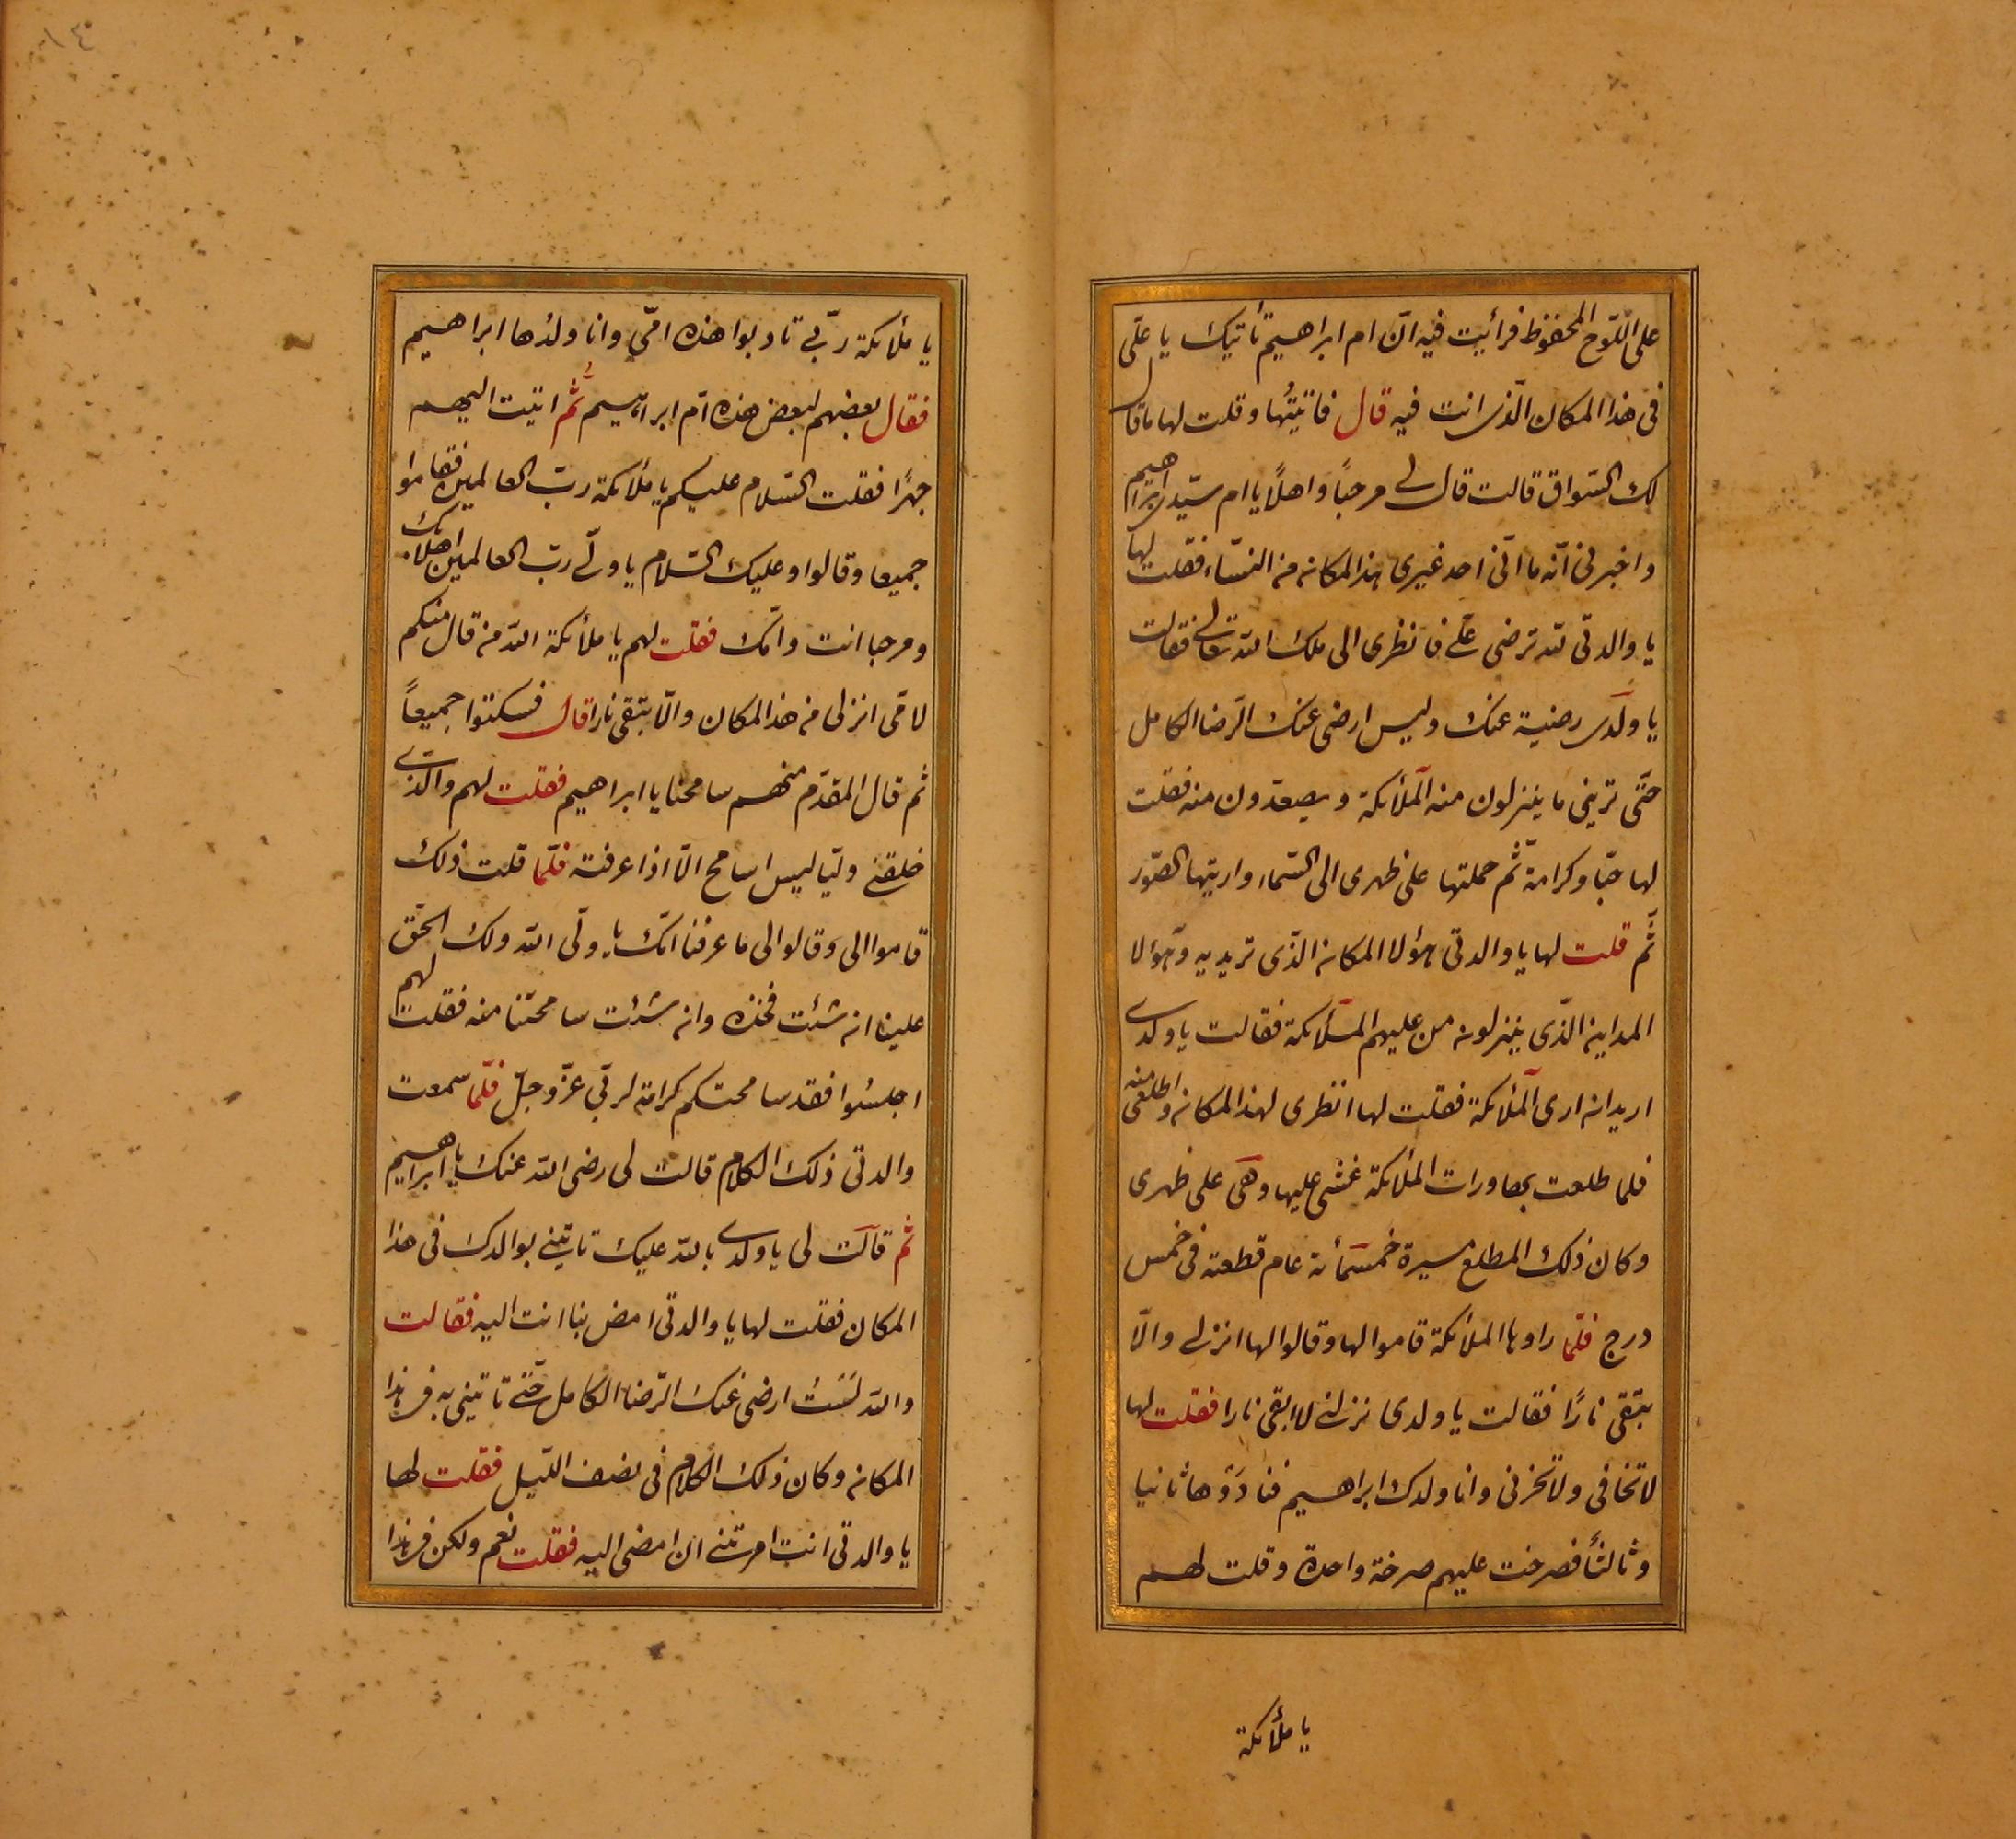 على اللّوح المحفوظ فرائيت فيه انّ ام ابراهيم تأتيك يا علّى
فى هذا المكان الّذى انت فيه قال فاتيتُها وقلت لها ما قال
لك السّواق قالت قال لى مرحباً واهلاً يا ام سيّدى ابراهيم
واخبرنى انّه ما اتى احد غيرى هذا المكان من النسّاء فقلت لها
يا والدتى لله ترضى علّى فانظرى الى ملك الله تعالى فقالت
يا ولدى رضية عنك وليس ارضى عنك الرّضا الكامل
حتّى ترينى ما ينزلون منه الملأئكة ويصعدون منه فقلت
لها حبّا وكرامة ثم حملتها على ظهرى الى السّماء واريتها الصّور
ثم قلت لها يا والدتى هؤلا المكان الّذى تريديه وهؤلا
المداين الّذى ينزلون من عليهم الملأئكة فقالت يا ولدى
اريد ان ارى الملأئكة فقلت لها انظرى لهذا المكان واطلعى منه
فلما طلعت بمحاورات الملأئكة غشى عليها وهى على ظهرى
وكان ذلك المطلع مسيرة خمسمأئة عام قطعته فى خمس
درج فلمّا راوها الملأئكة قاموا لها وقالوا لها انزلى والاّ
بتقى نارًا فقالت يا ولدى نزلنى لا ابقى نارا فقلت لها
لا تخافى ولا تحزنى وانا ولدك ابراهيم فنادَوْها ثانيا
وثالثاً فصرخت عليهم صرخة واحدة وقلت لهم
يا ملأئكة
يا ملأئكة ربّى تادبوا هذه امّى وانا ولدُها ابراهيم
فقال بعضهم لبعض هذه امّ ابراهيم ثُم اتيت اليهم
جهرًا فقلت السّلام عليكم يا ملأئكة ربّ العالمين فقاموا
جميعا وقالوا وعليك السّلام يا ولّى ربّ العالمين اهلا بك
ومرحبا انت وامّك فقلت لهم يا ملأئكة الله من قال منكم
لامّى انزلى من هذا المكان والّا بتقى نارا قال فسكتوا جميعاً
ثم قال المقدّم منهم سامحنا يا ابراهيم فقلت لهم والّذى
خلقنى وليّا ليس اسامح الاّ اذا عرفته فلمّا قلت ذلك
قاموا الى وقالوا لى ما عرفنا انّك يا ولّى الله ولك الحقّ
علينا ان شئت فخذه وان شئت سامحتنا منه فقلت لهم
اجلسُوا فقد سامحتكم كرامة لربّى عزّ وجلّ فلمّا سمعت
والدتى ذلك الكلام قالت لى رضى الله عنك يا ابراهيم
ثم قالت لى يا ولدى بالله عليك تاتينى بوالدك فى هذا
المكان فقلت لها يا والدتى امض بنا انت اليه فقالت
والله لسَتُ ارضى عنك الرّضا الكامل حتّى تاتينى به فى هذا
المكان وكان ذلك الكلام فى نصف اللّيل فقلت لها
يا والدتى انت امرتينى ان امضى اليه فقلت نعم ولكن فى هذا